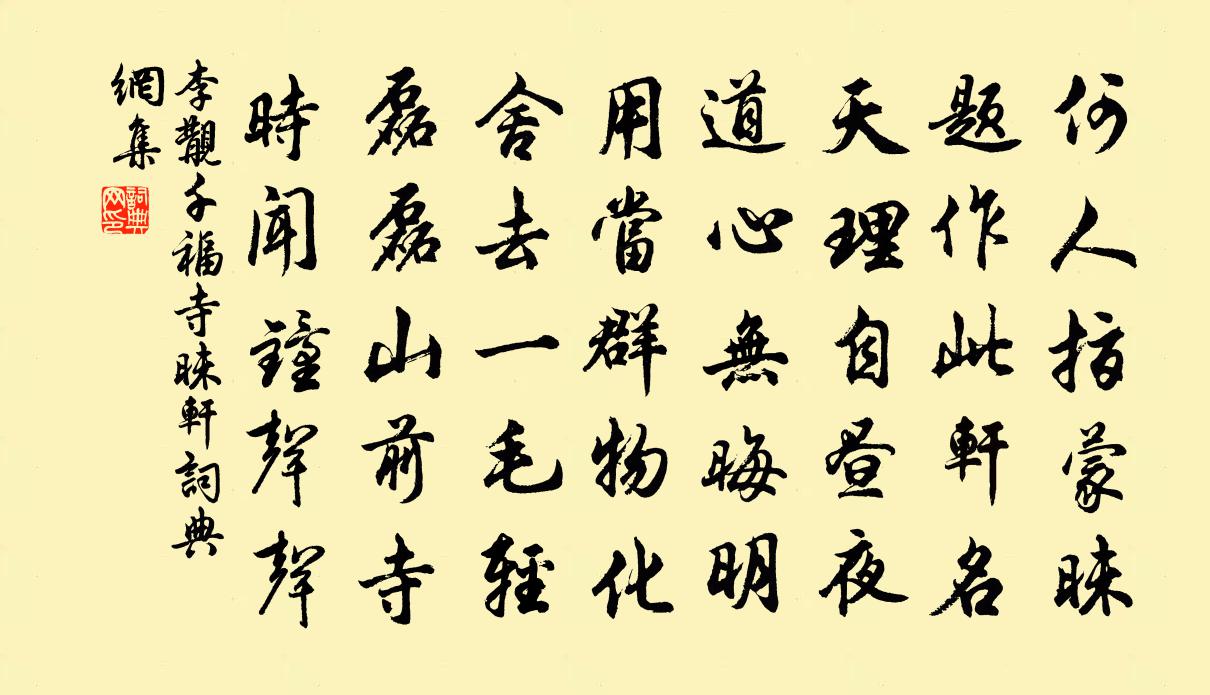 何人指蒙昧
題作此軒名
天理自昼夜
道心無晦明
用當群物化
舍去一毛輕
磊磊山前寺
時聞鐘聲聲
李觀千福寺昧軒詞典
網集
詞典
网印